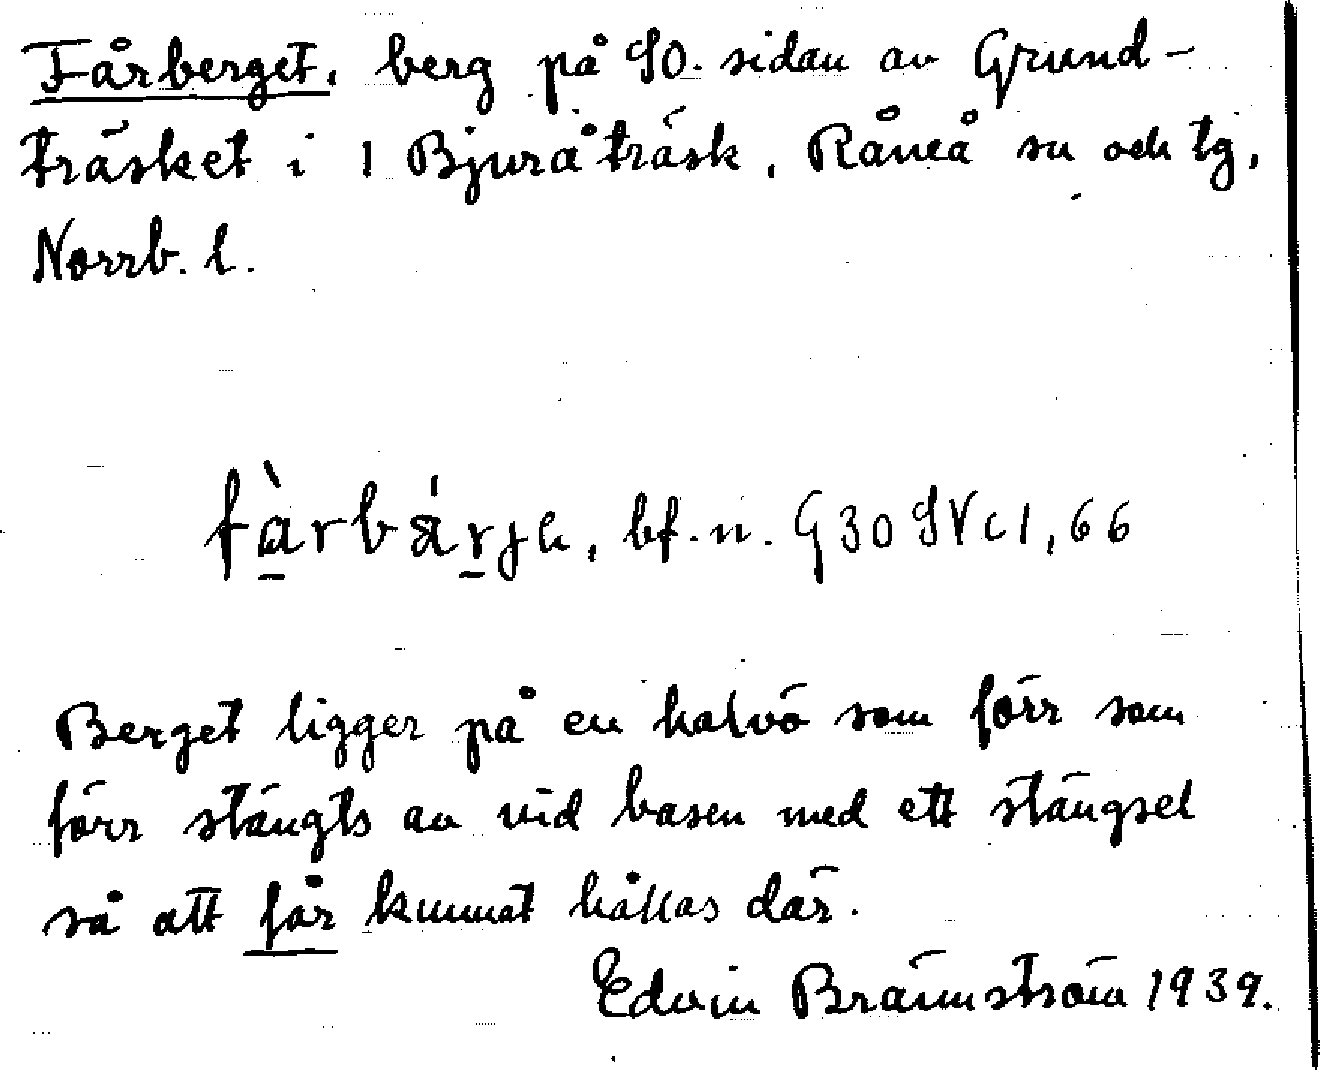 Fårberget, berg på SO. sidan av Grund-
träsket i 1 Bjuråträsk, Råneå sn och tg,
Norrb. l.
fàrbárjɛ, bf. n. G30 SVc1, 66
Berget ligger på en halvö som förr som
förr stängts av vid basen med ett stängsel
så att får kunnat hållas där.
Edvin Brännström 1939.